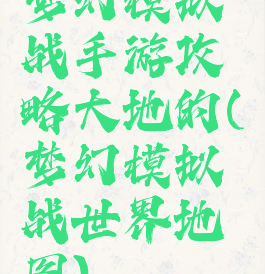 梦幻模拟
战手游攻
略大地的(
梦幻模拟
战世界地
图)